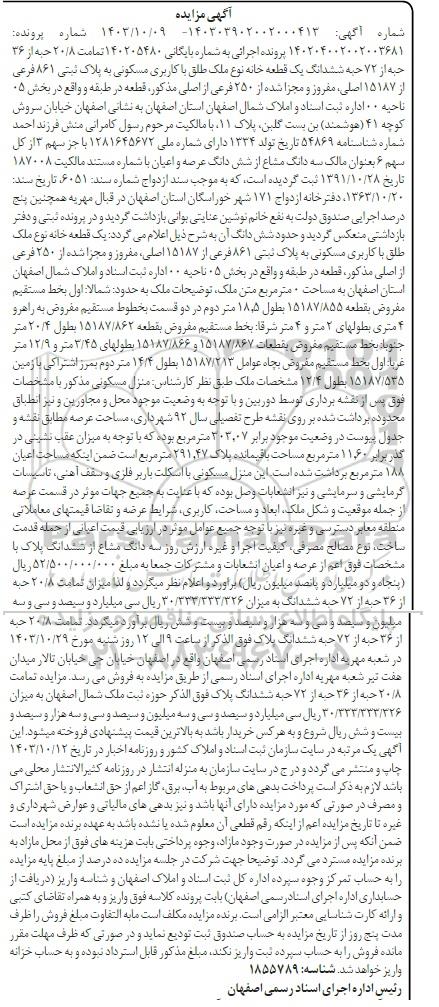 آگهی مزایده
شماره آگهی: ۱۴۰۳۰۳۹۰۲۰۰۲۰۰۰۴۱۳- ۱۴۰۳/۱۰/۰۹ شماره پرونده:
۱۴۰۲۰۴۰۰۲۰۰۲۰۰۳۶۸۱ پرونده اجرائی به شماره بایگانی ۱۴۰۲۰۵۴۸۰ تمامت ۲۰/۸ حبه از ۳۶
حبه از ۷۲ حبه ششدانگ یک قطعه خانه نوع ملک طلق با کاربری مسکونی به پلاک ثبتی ۸۶۱ فرعی
از ۱۵۱۸۷ اصلی، مفروز و مجزا شده از ۲۵۰ فرعی از اصلی مذکور، قطعه در طبقه و واقع در بخش ۰۵
ناحیه ۰۰ اداره ثبت اسناد و املاک شمال اصفهان استان اصفهان به نشانی اصفهان خیابان سروش
کوچه ۴۱ (هوشمند) بن بست گلبن، پلاک ۱۱، با مالکیت مرحوم رسول کامرانی منش فرزند احمد
شماره شناسنامه ۵۴۸۶۹ تاریخ تولد ۱۳۳۴ دارای شماره ملی ۱۲۸۱۶۴۵۶۷۲ با جز سهم ۳ از کل
سهم ۶ بعنوان مالک سه دانگ مشاع از شش دانگ عرصه و اعیان با شماره مستند مالکیت ۱۸۷۰۰۸
تاریخ ۱۳۹۱/۱۰/۲۸ ثبت گردیده است، که به موجب سند ازدواج شماره سند: ۶۰۵۱، تاریخ سند:
۱۳۶۳/۱۰/۲۰، دفترخانه ازدواج ۱۷۱ شهر خوراسگان استان اصفهان در قبال مهریه همچنین پنج
درصد اجرایی صندوق دولت به نفع خانم نوشین عنایتی بوانی بازداشت گردید و در پرونده ثبتی و دفتر
بازداشتی منعکس گردید و حدود شش دانگ آن به شرح ذیل اعلام می گردد: یک قطعه خانه نوع ملک
طلق با کاربری مسکونی به پلاک ثبتی ۸۶۱ فرعی از ۱۵۱۸۷ اصلی، مفروز و مجزا شده از ۲۵۰ فرعی
از اصلی مذکور، قطعه در طبقه و واقع در بخش ۰۵ ناحیه ۰۰ اداره ثبت اسناد و املاک شمال اصفهان
استان اصفهان به مساحت ۰ متر مربع متن ملک، توضیحات ملک به حدود: شمالا: اول بخط مستقیم
مفروض بقطعه ۱۵۱۸۷/۸۵۵ بطول ۱۸٫۵ متر دوم در دو قسمت بخطوط مستقیم مفروض به راهرو
۴ متری بطولهای ۲ متر و ۴ متر شرقا: بخط مستقیم مفروض بقطعه ۱۵۱۸۷/۸۶۲ بطول ۲۰/۴ متر
جنوبا: بخط مستقیم مفروض بقطعات ۱۵۱۸۷/۸۶۷ و ۱۵۱۸۷/۸۶۶ بطولهای ۳/۴۵ متر و ۱۲/۹ متر
غربا: اول بخط مستقیم مفروض بچاه عوامل ۱۵۱۸۷/۲۱۳ بطول ۱۴/۴ متر دوم بمرز اشتراکی با زمین
۱۵۱۸۷/۵۳۵ بطول ۱۲/۴ مشخصات ملک طبق نظر کارشناس: منزل مسکونی مذکور با مشخصات
فوق پس از نقشه برداری توسط دوربین و با توجه به وضعیت موجود محل و مجاورین و نیز انطباق
محدوده برداشت شده بر روی نقشه طرح تفصیلی سال ۹۲ شهرداری، مساحت عرصه مطابق نقشه و
جدول پیوست در وضعیت موجود برابر ۳۰۳٫۰۷ متر مربع بوده که با توجه به میزان عقب نشینی در
گذر برابر ۱۱٫۶۰ متر مربع مساحت باقیمانده پلاک ۲۹۱٫۴۷ متر مربع است ضمن اینکه مساحت اعیان
۱۸۸ متر مربع برداشت شده است. این منزل مسکونی با اسکلت باربر فلزی و سقف آهنی، تاسیسات
گرمایشی و سرمایشی و نیز انشعابات وصل بوده که با عنایت به جمیع جهات موثر در قسمت عرصه
از جمله موقعیت و شکل ملک، ابعاد و مساحت، کاربری، شرایط عرضه و تقاضا قیمتهای معاملاتی
منطقه معابر دسترسی و غیره نیز با توجه جمیع عوامل موثر در ارزیابی قیمت اعیانی از جمله قدمت
ساخت، نوع مصالح مصرفی، کیفیت اجرا و غیره ارزش روز سه دانگ مشاع از ششدانگ پلاک با
مشخصات فوق اعم از عرصه و اعیان انشعابات و مشترکات جمعا به مبلغ ۵۲/۵۰۰/۰۰۰/۰۰۰ ریال
(پنجاه و دو میلیارد و پانصد میلیون ریال) براورد و اعلام نظر میگردد و لذا میزان تمامت ۲۰/۸ حبه
از ۳۶ حبه از ۷۲ حبه ششدانگ به میزان ۳۰/۳۳۳/۳۳۳/۳۲۶ ریال سی میلیارد و سیصد و سی و سه
میلیون و سیصد و سی و سه هزار و سیصد و بیست و شش ریال برآورد میگردد. تمامت ۲۰/۸ حبه
از ۳۶ حبه از ۷۲ حبه ششدانگ پلاک فوق الذکر از ساعت ۹ الی ۱۲ روز شنبه مورخ ۱۴۰۳/۱۰/۲۹
در شعبه مهریه اداره اجرای اسناد رسمی اصفهان واقع در اصفهان خیابان جی خیابان تالار میدان
هفت تیر شعبه مهریه اداره اجرای اسناد رسمی از طریق مزایده به فروش می رسد. مزایده تمامت
۲۰/۸ حبه از ۳۶ حبه از ۷۲ حبه ششدانگ پلاک فوق الذکر حوزه ثبت ملک شمال اصفهان به میزان
۳۰/۳۳۳/۳۳۳/۳۲۶ ریال سی میلیارد و سیصد و سی و سه میلیون و سیصد و سی و سه هزار و سیصد و
بیست و شش ریال شروع و به هر کس خریدار باشد به بالاترین قیمت پیشنهادی فروخته میشود. این
آگهی یک مرتبه در سایت سازمان ثبت اسناد و املاک کشور و روزنامه اخبار در تاریخ ۱۴۰۳/۱۰/۱۲
چاپ و منتشر می گردد و درج در سایت سازمان به منزله انتشار در روزنامه کثیرالانتشار محلی می
باشد لازم به ذکر است پرداخت بدهی های مربوط به آب، برق، گاز اعم از حق انشعاب و یا حق اشتراک
و مصرف در صورتی که مورد مزایده دارای آنها باشد و نیز بدهی های مالیاتی و عوارض شهرداری و
غیره تا تاریخ مزایده اعم از اینکه رقم قطعی آن معلوم شده یا نشده باشد به عهده برنده مزایده است
ضمن آنکه پس از مزایده در صورت وجود مازاد، وجوه پرداختی بابت هزینه های فوق از محل مازاد به
برنده مزایده مسترد می گردد. توضیحا جهت شرکت در جلسه مزایده ده درصد از مبلغ پایه مزایده
را به حساب تمرکز وجوه سپرده اداره کل ثبت اسناد و املاک اصفهان و شناسه واریز (دریافت از
حسابداری اداره اجرای اسناد رسمی اصفهان) بابت پرونده کلاسه فوق واریز و به همراه تقاضای کتبی
و ارائه کارت شناسایی معتبر الزامی است. برنده مزایده مکلف است مابه التفاوت مبلغ فروش را ظرف
مدت پنج روز از تاریخ مزایده به حساب صندوق ثبت تودیع نماید و در صورتی که ظرف مهلت مقرر
مانده فروش را به حساب سپرده ثبت واریز نکند، مبلغ مذکور قابل استرداد نبوده و به حساب خزانه
واریز خواهد شد. شناسه: ۱۸۵۵۷۸۹
رئیس اداره اجرای اسناد رسمی اصفهان